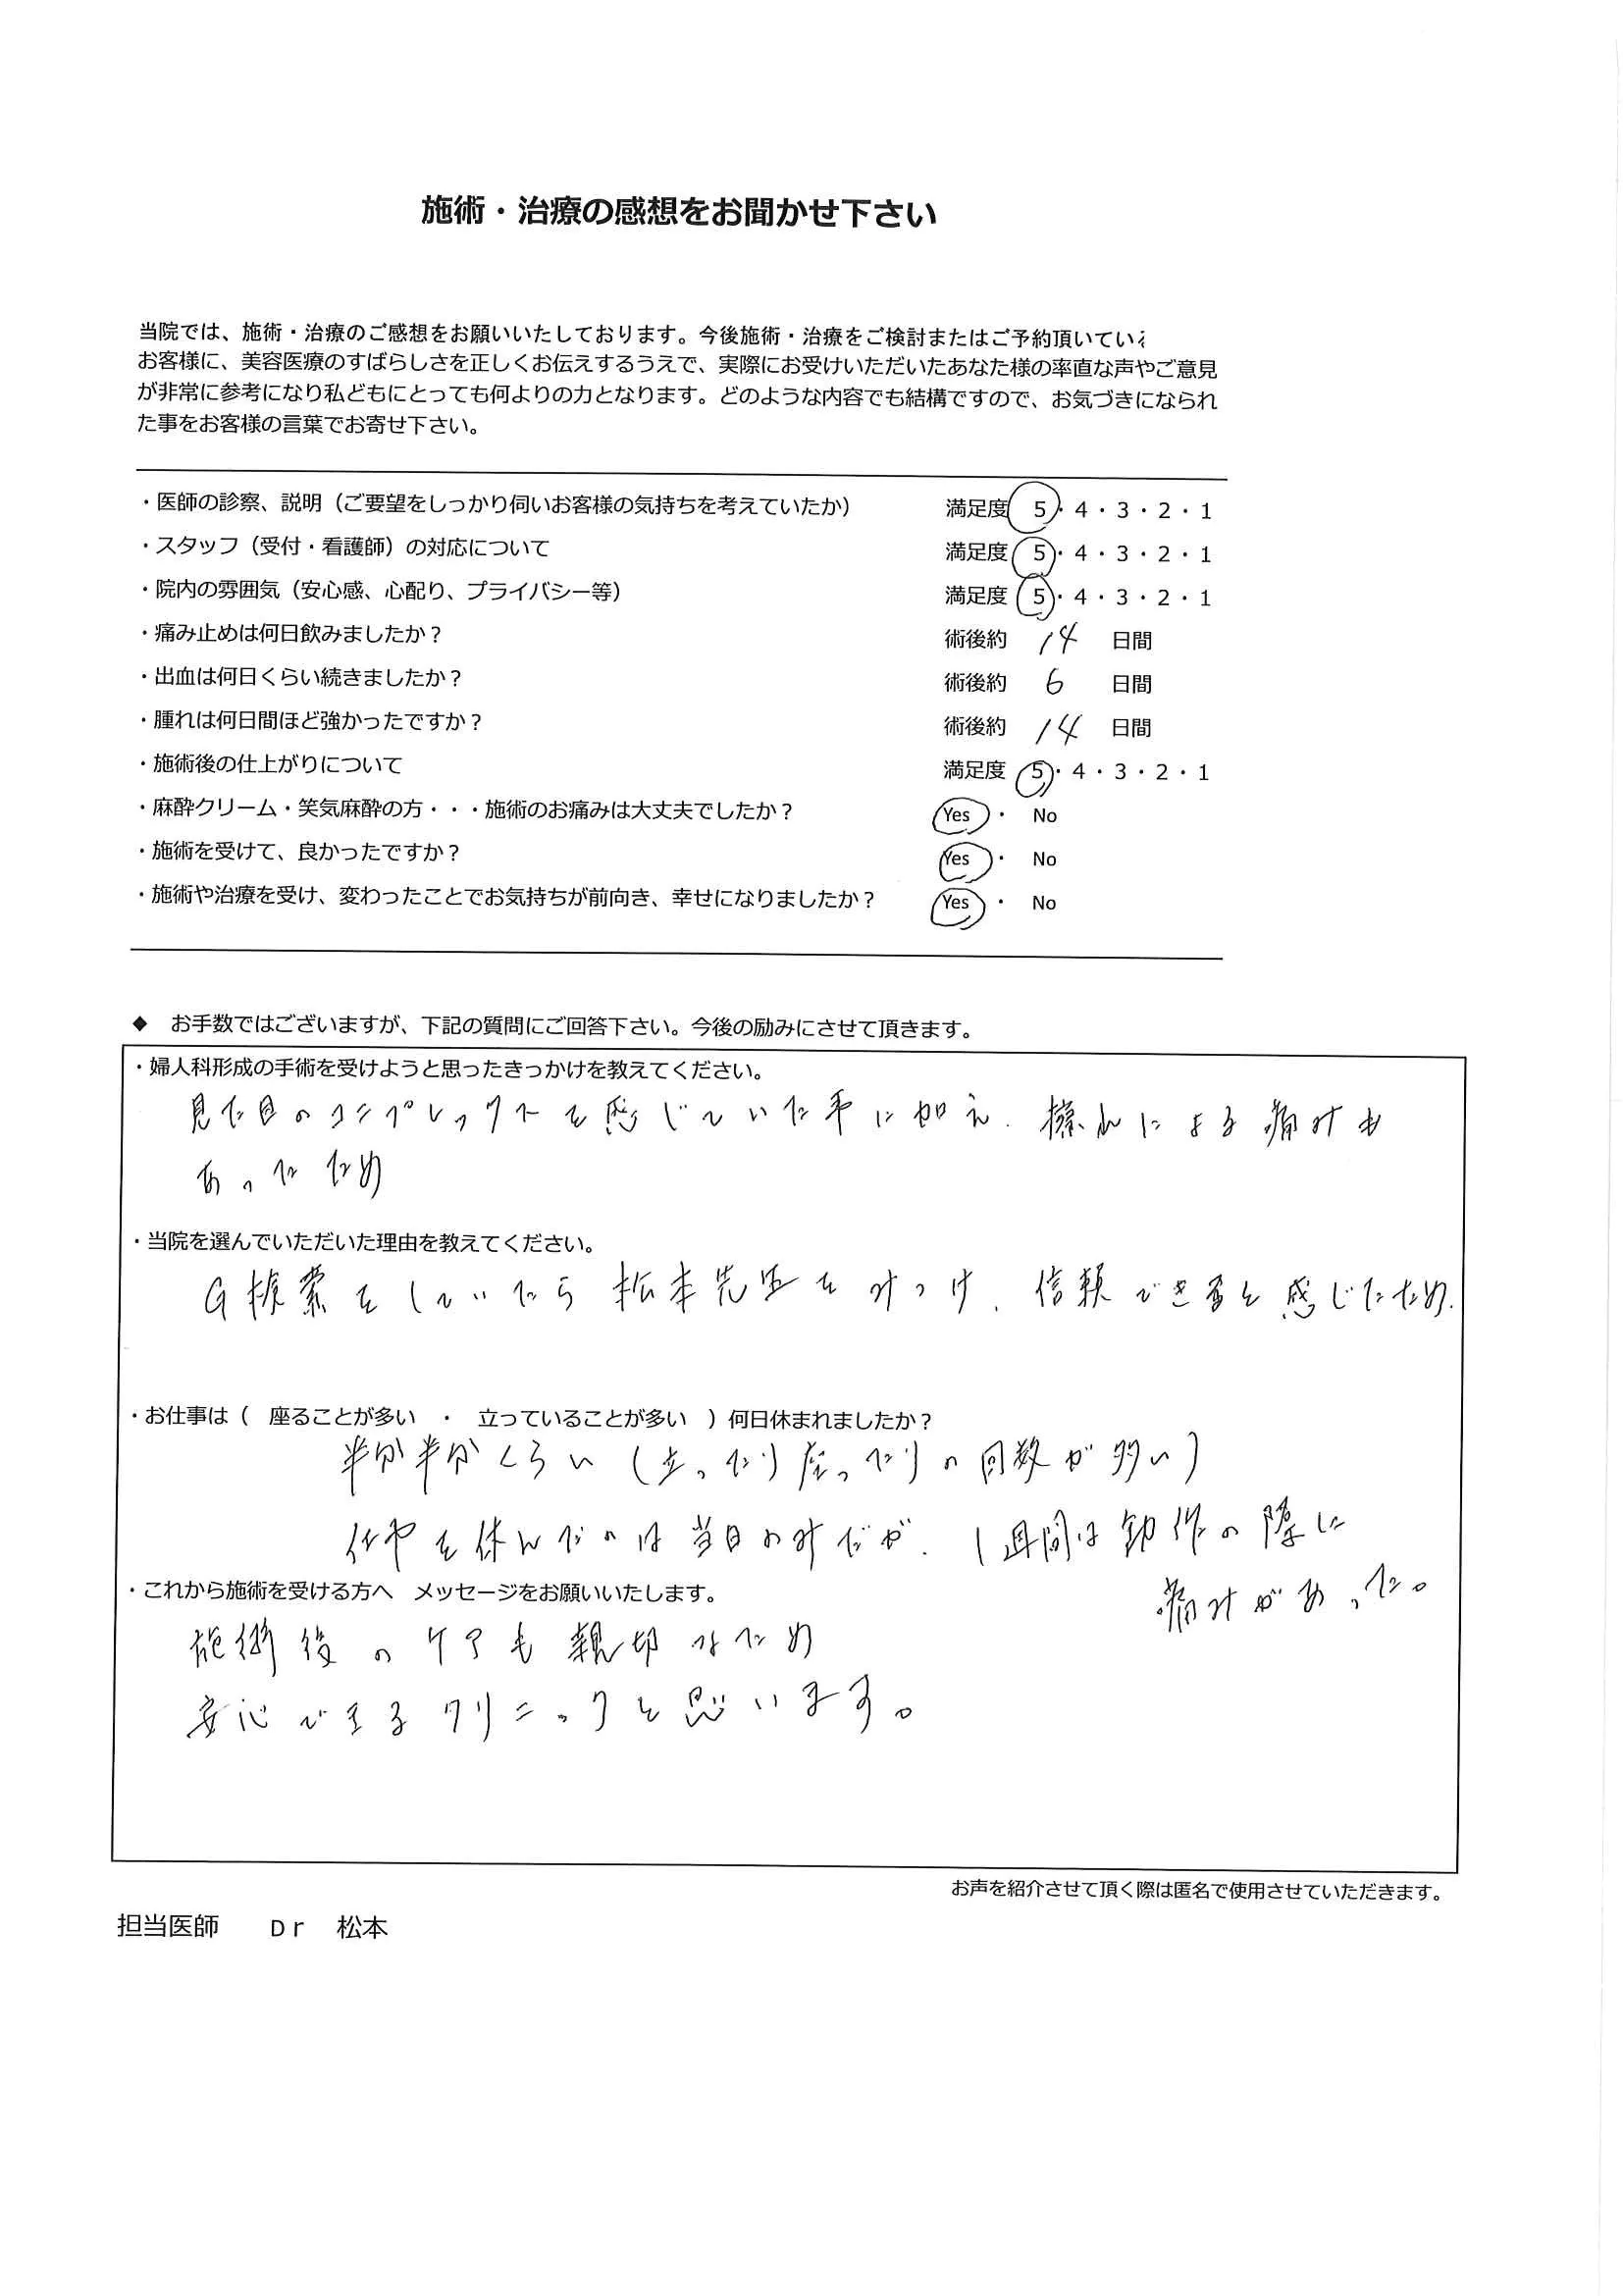 施術・治療の感想をお聞かせ下さい
当院では、施術・治療のご感想をお願いいたしております。今後施術・治療をご検討またはご予約頂いてい
お客様に、美容医療のすばらしさを正しくお伝えするうえで、実際にお受けいただいたあなた様の率直な声やご意見
が非常に参考になり私どもにとっても何よりの力となります。どのような内容でも結構ですので、お気づきになられ
た事をお客様の言葉でお寄せ下さい。
・医師の診察、説明（ご要望をしっかり伺いお客様の気持ちを考えていたか） 満足度 5・4・3・2・1
・スタッフ（受付・看護師）の対応について 満足度 5・4・3・2・1
・院内の雰囲気（安心感、心配り、プライバシー等） 満足度 5・4・3・2・1
・痛み止めは何日飲みましたか？ 術後約 14 日間
・出血は何日くらい続きましたか？ 術後約 6 日間
・腫れは何日間ほど強かったですか？ 術後約 14 日間
・施術後の仕上がりについて 満足度 5・4・3・2・1
・麻酔クリーム・笑気麻酔の方・・・施術のお痛みは大丈夫でしたか？ Yes ・ No
・施術を受けて、良かったですか？ Yes ・ No
・施術や治療を受け、変わったことでお気持ちが前向き、幸せになりましたか？ Yes ・ No
◆ お手数ではございますが、下記の質問にご回答下さい。今後の励みにさせて頂きます。
・婦人科形成の手術を受けようと思ったきっかけを教えてください。
見た目のコンプレックスを感じていた事に加え、擦れによる痛みも
あったため
・当院を選んでいただいた理由を教えてください。
G検索をしていたら松本先生をみつけ、信頼できると感じたため.
・お仕事は（ 座ることが多い ・ 立っていることが多い ）何日休まれましたか？
半分半分くらい（立ったり座ったりの回数が多い）
仕事を休んだのは当日のみだが、1週間は動作の際に
痛みがあった。
・これから施術を受ける方へ メッセージをお願いいたします。
施術後のケアも親切なため
安心できるクリニックと思います。
お声を紹介させて頂く際は匿名で使用させていただきます。
担当医師 Dr 松本